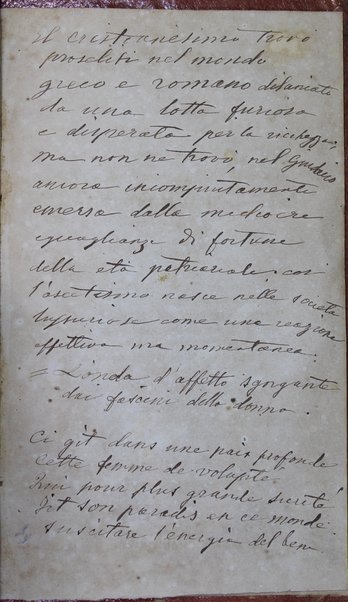 Il cristianesimo trovò
proseliti nel mondo
greco e romano dilaniato
da una lotta furiosa
e disperata per la ricchezza,
ma non ne trovò, nel Giudaico
ancora incompiutamente
emerso dalla mediocre
eguaglianza di fortune
della età patriarcale. così
l'ascetismo nasce nelle società
lussuriose come una reazione
effettiva ma momentanea.
= L'onda d'affetto sgorgante
dai fascini della donna.
Ci git dans une paix profonde
cette femme de volupté
Qui pour plus grande sureté
Fit son paradis en ce monde.
Suscitare l'energia del bene